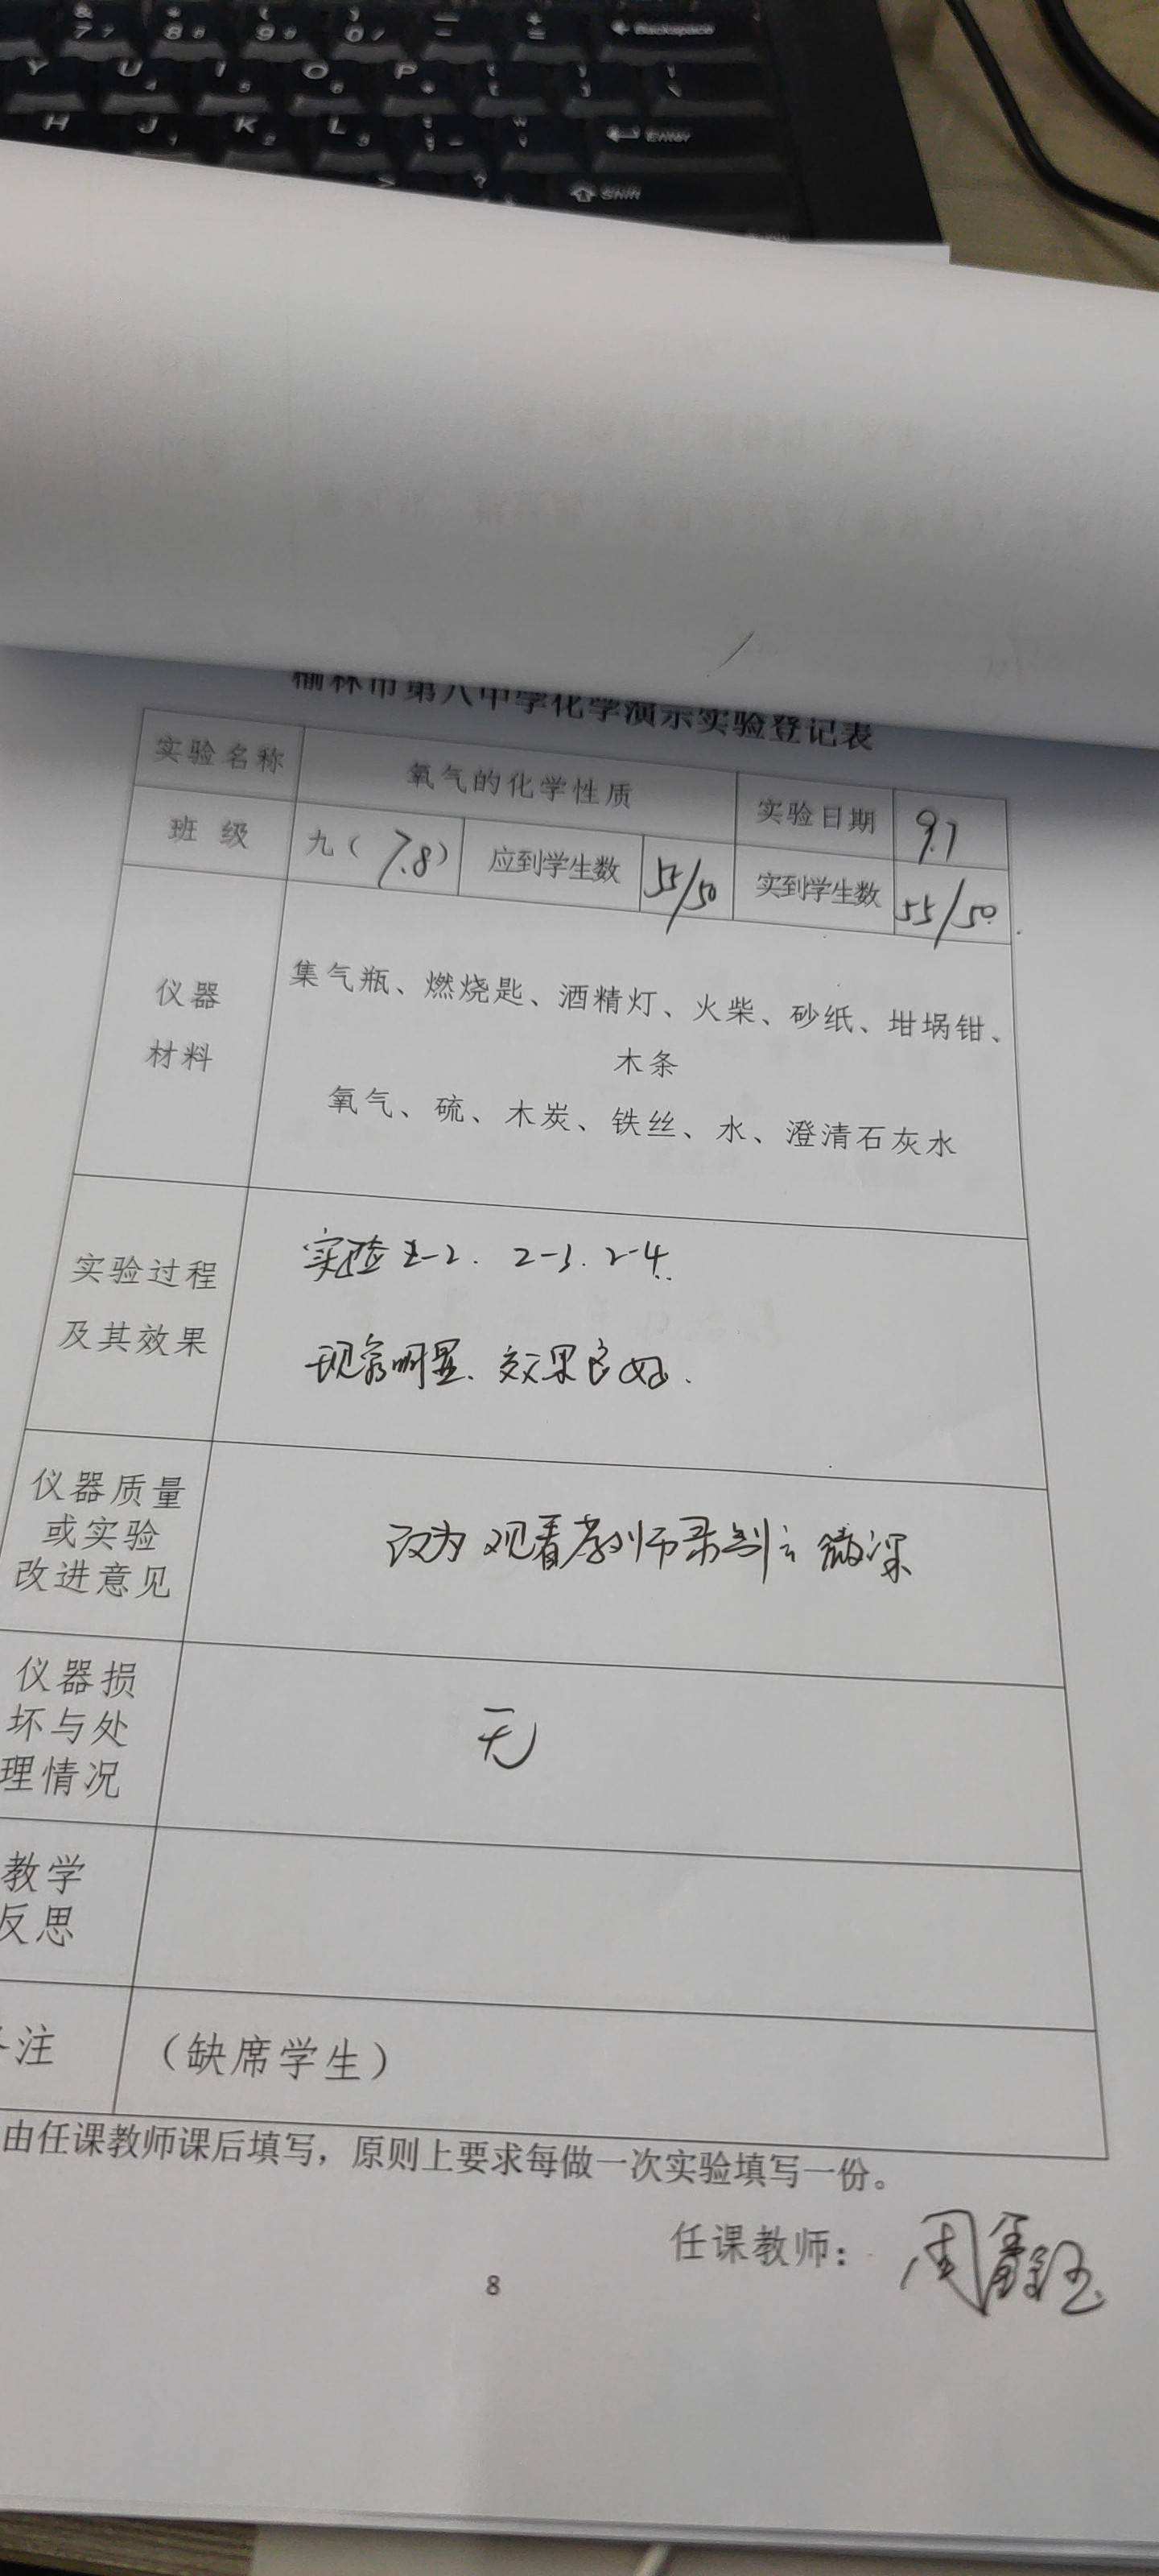 & 7 7 * 8 8 ( 9 9 ) 0 / — - + = Backspace
Y U 4 I 5 O 6 P *
H J 1 K 2 L 3 Enter
> ? Shift
榆林市第八中学化学演示实验登记表
实验名称 氧气的化学性质 实验日期 9.7
班 级 九（ 7.8） 应到学生数 55/50 实到学生数 55/50.
仪器
材料
集气瓶、燃烧匙、酒精灯、火柴、砂纸、坩埚钳、
木条
氧气、硫、木炭、铁丝、水、澄清石灰水
实验过程
及其效果
实验2-2. 2-3. 2-4.
现象明显、效果良好.
仪器质量
或实验
改进意见
改为观看教师录制之微课
仪器损
坏与处
理情况
无
教学
反思
注 （缺席学生）
由任课教师课后填写，原则上要求每做一次实验填写一份。
任课教师： 周
8